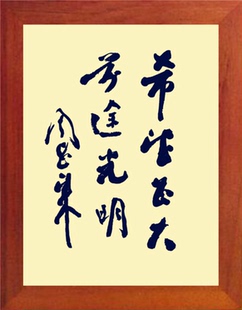 希望甚大
前途光明
周恩来